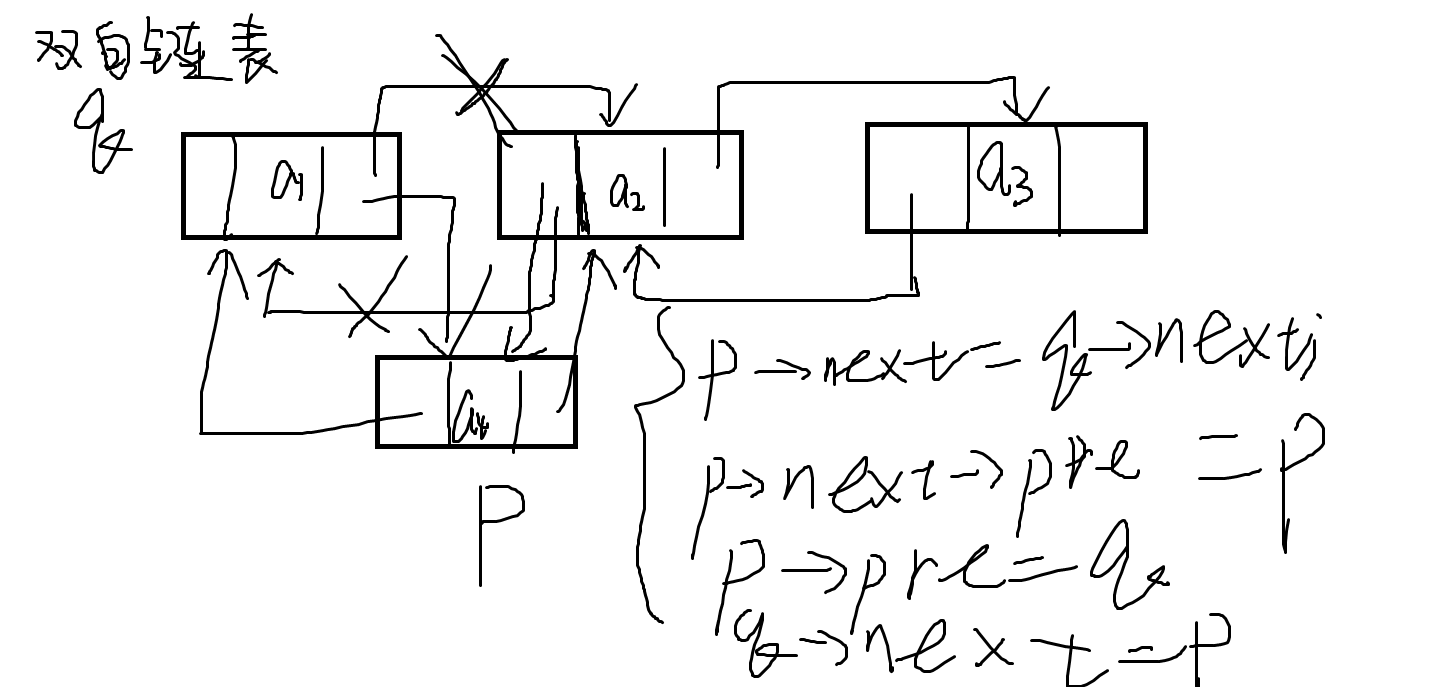 双向链表
q
a1
a2
a3
a4
P
p→next=q→next;
p→next→pre=p
p→pre=q
q→next=p